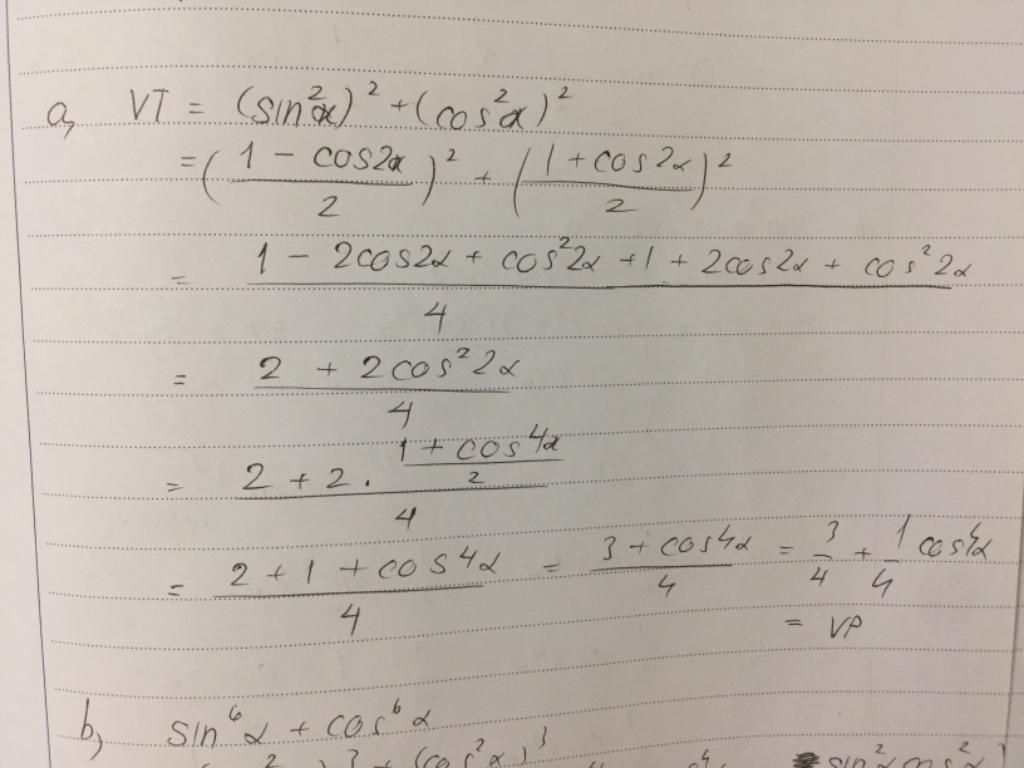 a, VT = (sin²α)² + (cos²α)²
= ((1 - cos2α)/2)² + ((1 + cos2α)/2)²
= (1 - 2cos2α + cos²2α + 1 + 2cos2α + cos²2α)/4
= (2 + 2cos²2α)/4
= (2 + 2 . (1 + cos4α)/2)/4
= (2 + 1 + cos4α)/4 = (3 + cos4α)/4 = 3/4 + 1/4 cos4α
= VP
b, sin⁶α + cos⁶α
(cos²α)³ sin²α cos²